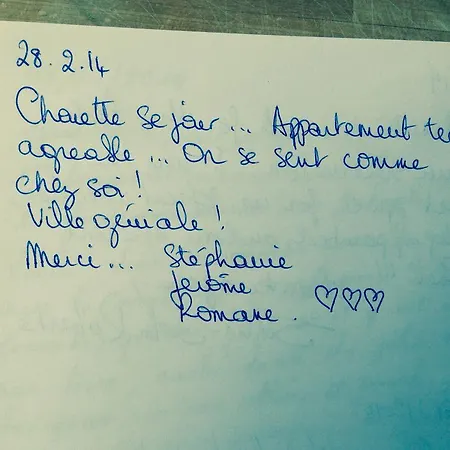 28.2.14
Chouette séjour... Appartement
agréable... On se sent comme
chez soi!
Ville géniale!
Merci... Stéphanie
Jerôme
Romane. ♡♡♡